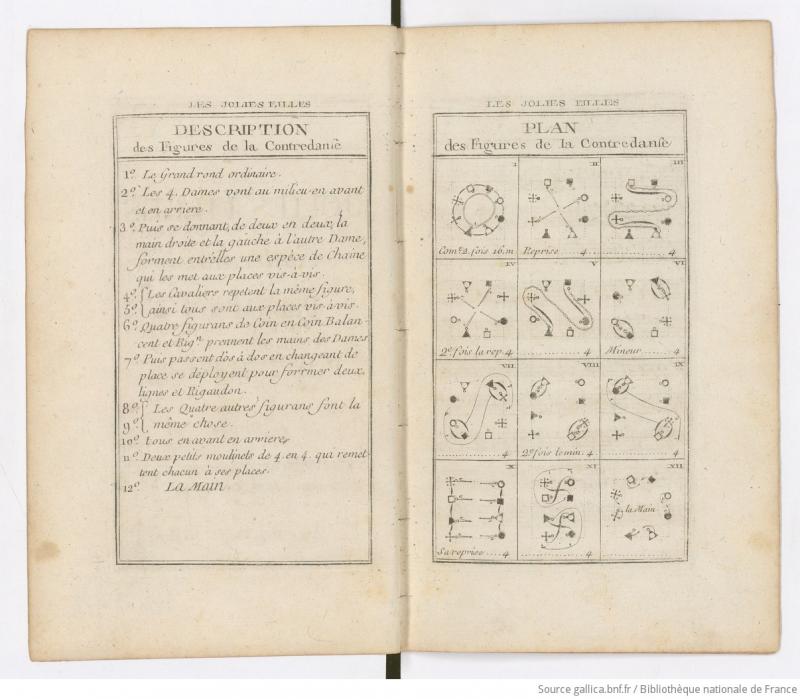 LES JOLIES FILLES
DESCRIPTION
des Figures de la Contredanse
1º. Le Grand rond ordinaire.
2º. Les 4. Dames vont au milieu en avant
et en arriere.
3º. Puis se donnant, de deux en deux, la
main droite et la gauche à l'autre Dame,
forment entr'elles une espèce de Chaine
qui les met aux places vis-à-vis.
4º. { Les Cavaliers repetent la même figure,
5º. { ainsi tous sont aux places vis-à-vis.
6º. Quatre figurans de Coin en Coin Balan-
cent et Rign. prennent les mains des Dames
7º. Puis passent dos à dos en changeant de
place se deployent pour forrmer deux
lignes et Rigaudon.
8º. { Les Quatre autres figurans font la
9º. { même chose.
10º. tous en avant en arrieres
11º. Deux petits moulinets de 4. en 4. qui remet-
tent chacun à ses places.
12º La Main
LES JOLIES FILLES
PLAN
des Figures de la Contredanse
I II III
Come. 2. fois 16. m Reprise 4 4
IV V VI
2e. fois la rep. 4 4 Mineur 4
VII VIII IX
4 2e. fois le min. 4 4
X XI XII
la Main
Sa reprise 4 4 4
Source gallica.bnf.fr / Bibliothèque nationale de France